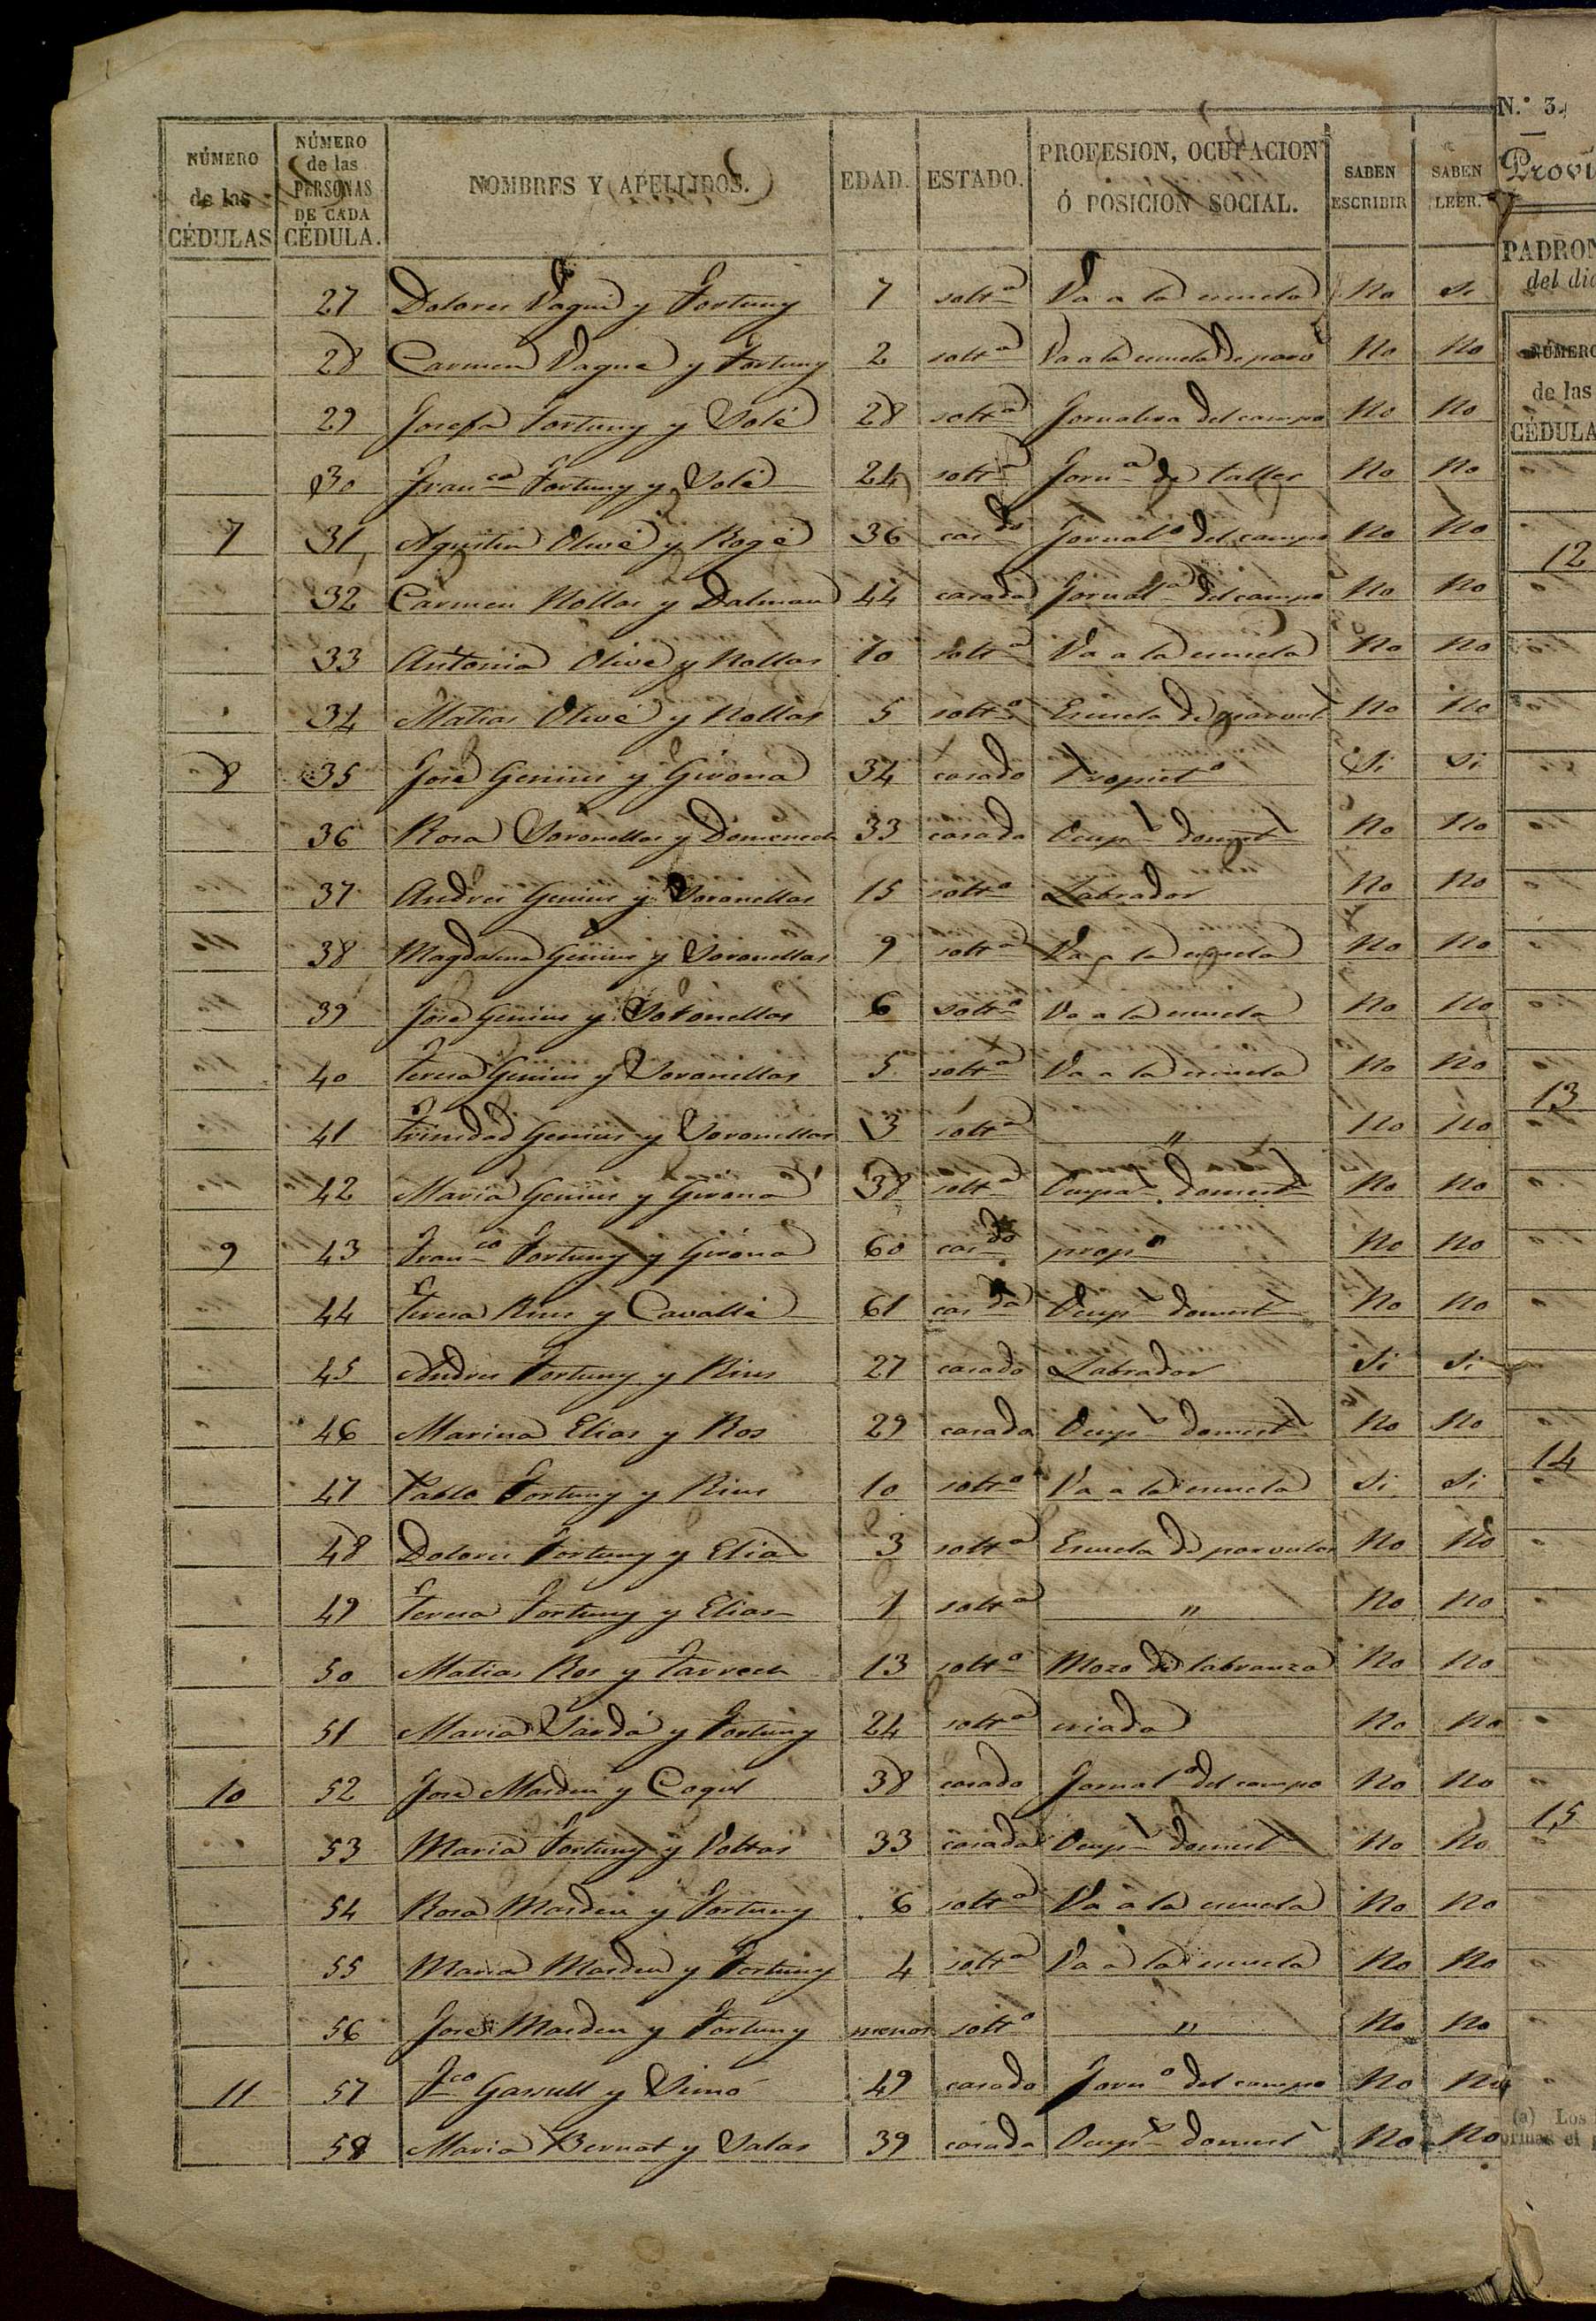 NÚMERO de las CÉDULAS | NÚMERO de las PERSONAS DE CADA CÉDULA. | NOMBRES Y APELLIDOS. | EDAD. | ESTADO. | PROFESION, OCUPACION Ó POSICION SOCIAL. | SABEN ESCRIBIR | SABEN LEER.
27 Dolores Vaqué y Fortuny 7 solt.a Va a la escuela No Si
28 Carmen Vaqué y Fortuny 2 solt.a Va a la escuela de parv No No
29 Josefa Fortuny y Solé 28 solt.a Jornalera del campo No No
30 Fran.ca Fortuny y Solé 24 solt.a Jorn.a de taller No No
7 31 Agustin Olivé y Rogé 36 cas.do Jornal.o del campo No No
32 Carmen Nollas y Dalmau 44 casada Jornal.a del campo No No
33 Antonia Olivé y Nollas 10 solt.a Va a la escuela No No
34 Matias Olivé y Nollas 5 solt.o Escuela de parvul No No
8 35 José Genius y Girona 34 casado Propiet.o Si Si
36 Rosa Soronellas y Domenech 33 casada Ocup.s domest.s No No
37 Andres Genius y Soronellas 15 solt.o Labrador No No
38 Magdalena Genius y Soronellas 9 solt.a Va a la escuela No No
39 José Genius y Soronellas 6 solt.o Va a la escuela No No
40 Teresa Genius y Soronellas 5 solt.a Va a la escuela No No
41 Trinidad Genius y Soronellas 3 solt.a " No No
42 Maria Genius y Girona 38 solt.a Ocupa.s domest.s No No
9 43 Fran.co Fortuny y Girona 60 cas.do prop.o No No
44 Teresa Rius y Cavallé 61 cas.da Ocup.s domest.s No No
45 Andres Fortuny y Rius 27 casado Labrador Si Si
46 Marina Elias y Ros 29 casada Ocup.s domest.s No No
47 Pablo Fortuny y Rius 10 solt.o Va a la escuela Si Si
48 Dolores Fortuny y Elias 3 solt.a Escuela de parvulos No No
49 Teresa Fortuny y Elias 1 solt.a " No No
50 Matias Ros y Tarrech 13 solt.o Mozo de labranza No No
51 Maria Sardá y Fortuny 24 solt.a criada No No
10 52 José Mardeu y Cogul 38 casado Jornal.o del campo No No
53 Maria Fortuny y Voltas 33 casada Ocup.s domest.s No No
54 Rosa Mardeu y Fortuny 6 solt.a Va a la escuela No No
55 Maria Mardeu y Fortuny 4 solt.a Va a la escuela No No
56 José Mardeu y Fortuny menor solt.o " No No
11 57 F.co Gassull y Simó 49 casado Jorn.o del campo No No
58 Maria Bernat y Salas 39 casada Ocup.s domest.s No No
N.º 3.
Provi
PADRON
del dia
NÚMERO
de las
CÉDULA
12
13
14
15
(a) Los